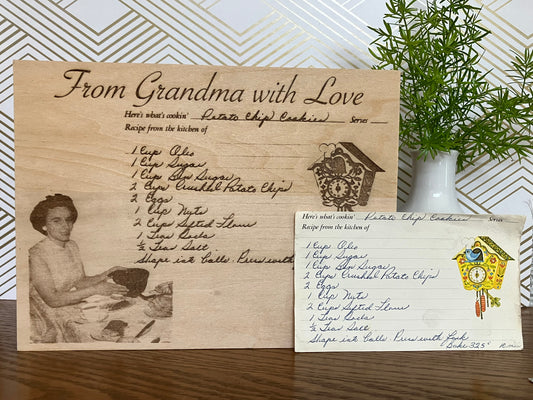 From Grandma with Love
Here's what's cookin' Potato Chip Cookies Serves
Recipe from the kitchen of
1 Cup Oleo
1 Cup Sugar
1 Cup Brn Sugar
2 Cups Crushed Potato Chips
2 Eggs
1 Cup Nuts
2 Cups Sifted Flour
1 Teas Soda
½ Teas Salt
Shape into Balls. Press with
Here's what's cookin' Potato Chip Cookies Serves
Recipe from the kitchen of
1 Cup Oleo
1 Cup Sugar
1 Cup Brn Sugar
2 Cups Crushed Potato Chips
2 Eggs
1 Cup Nuts
2 Cups Sifted Flour
1 Teas Soda
½ Teas Salt
Shape into Balls. Press with Fork
Bake 325°